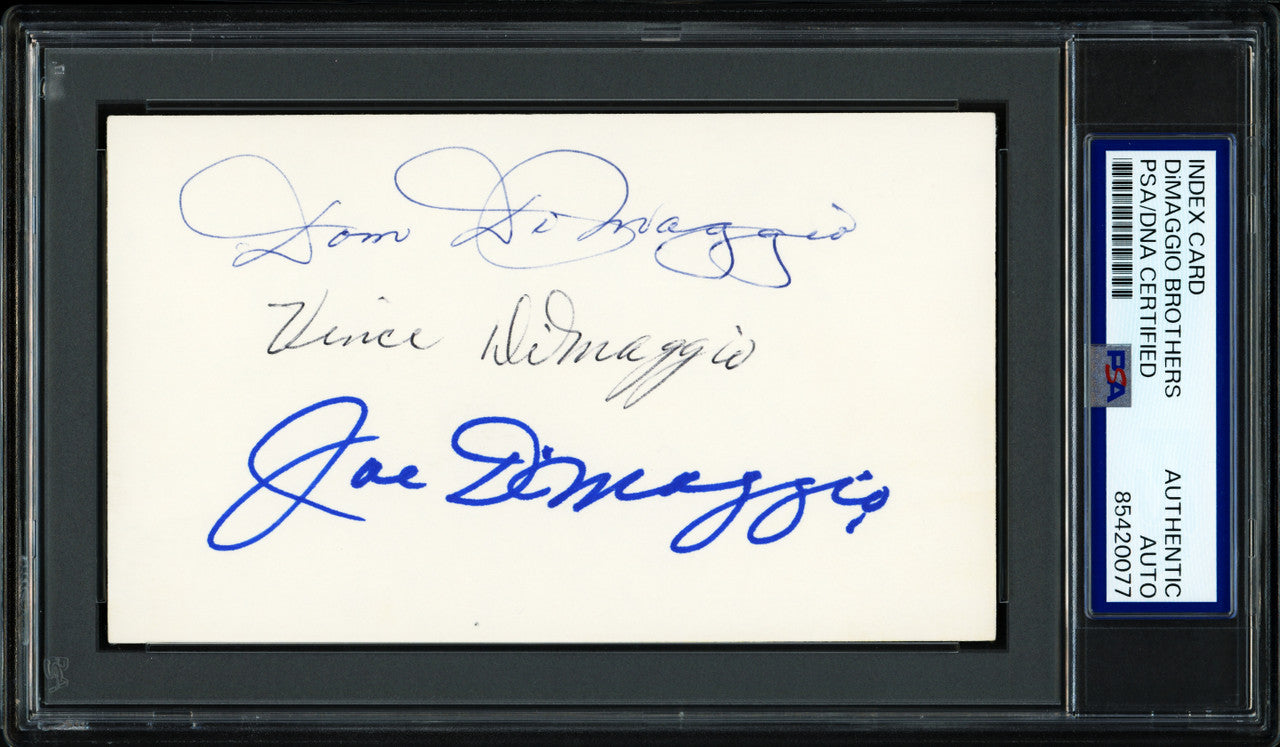 Dom DiMaggio
Vince DiMaggio
Joe DiMaggio
INDEX CARD
DiMAGGIO BROTHERS
PSA/DNA CERTIFIED
AUTHENTIC
AUTO
85420077
PSA